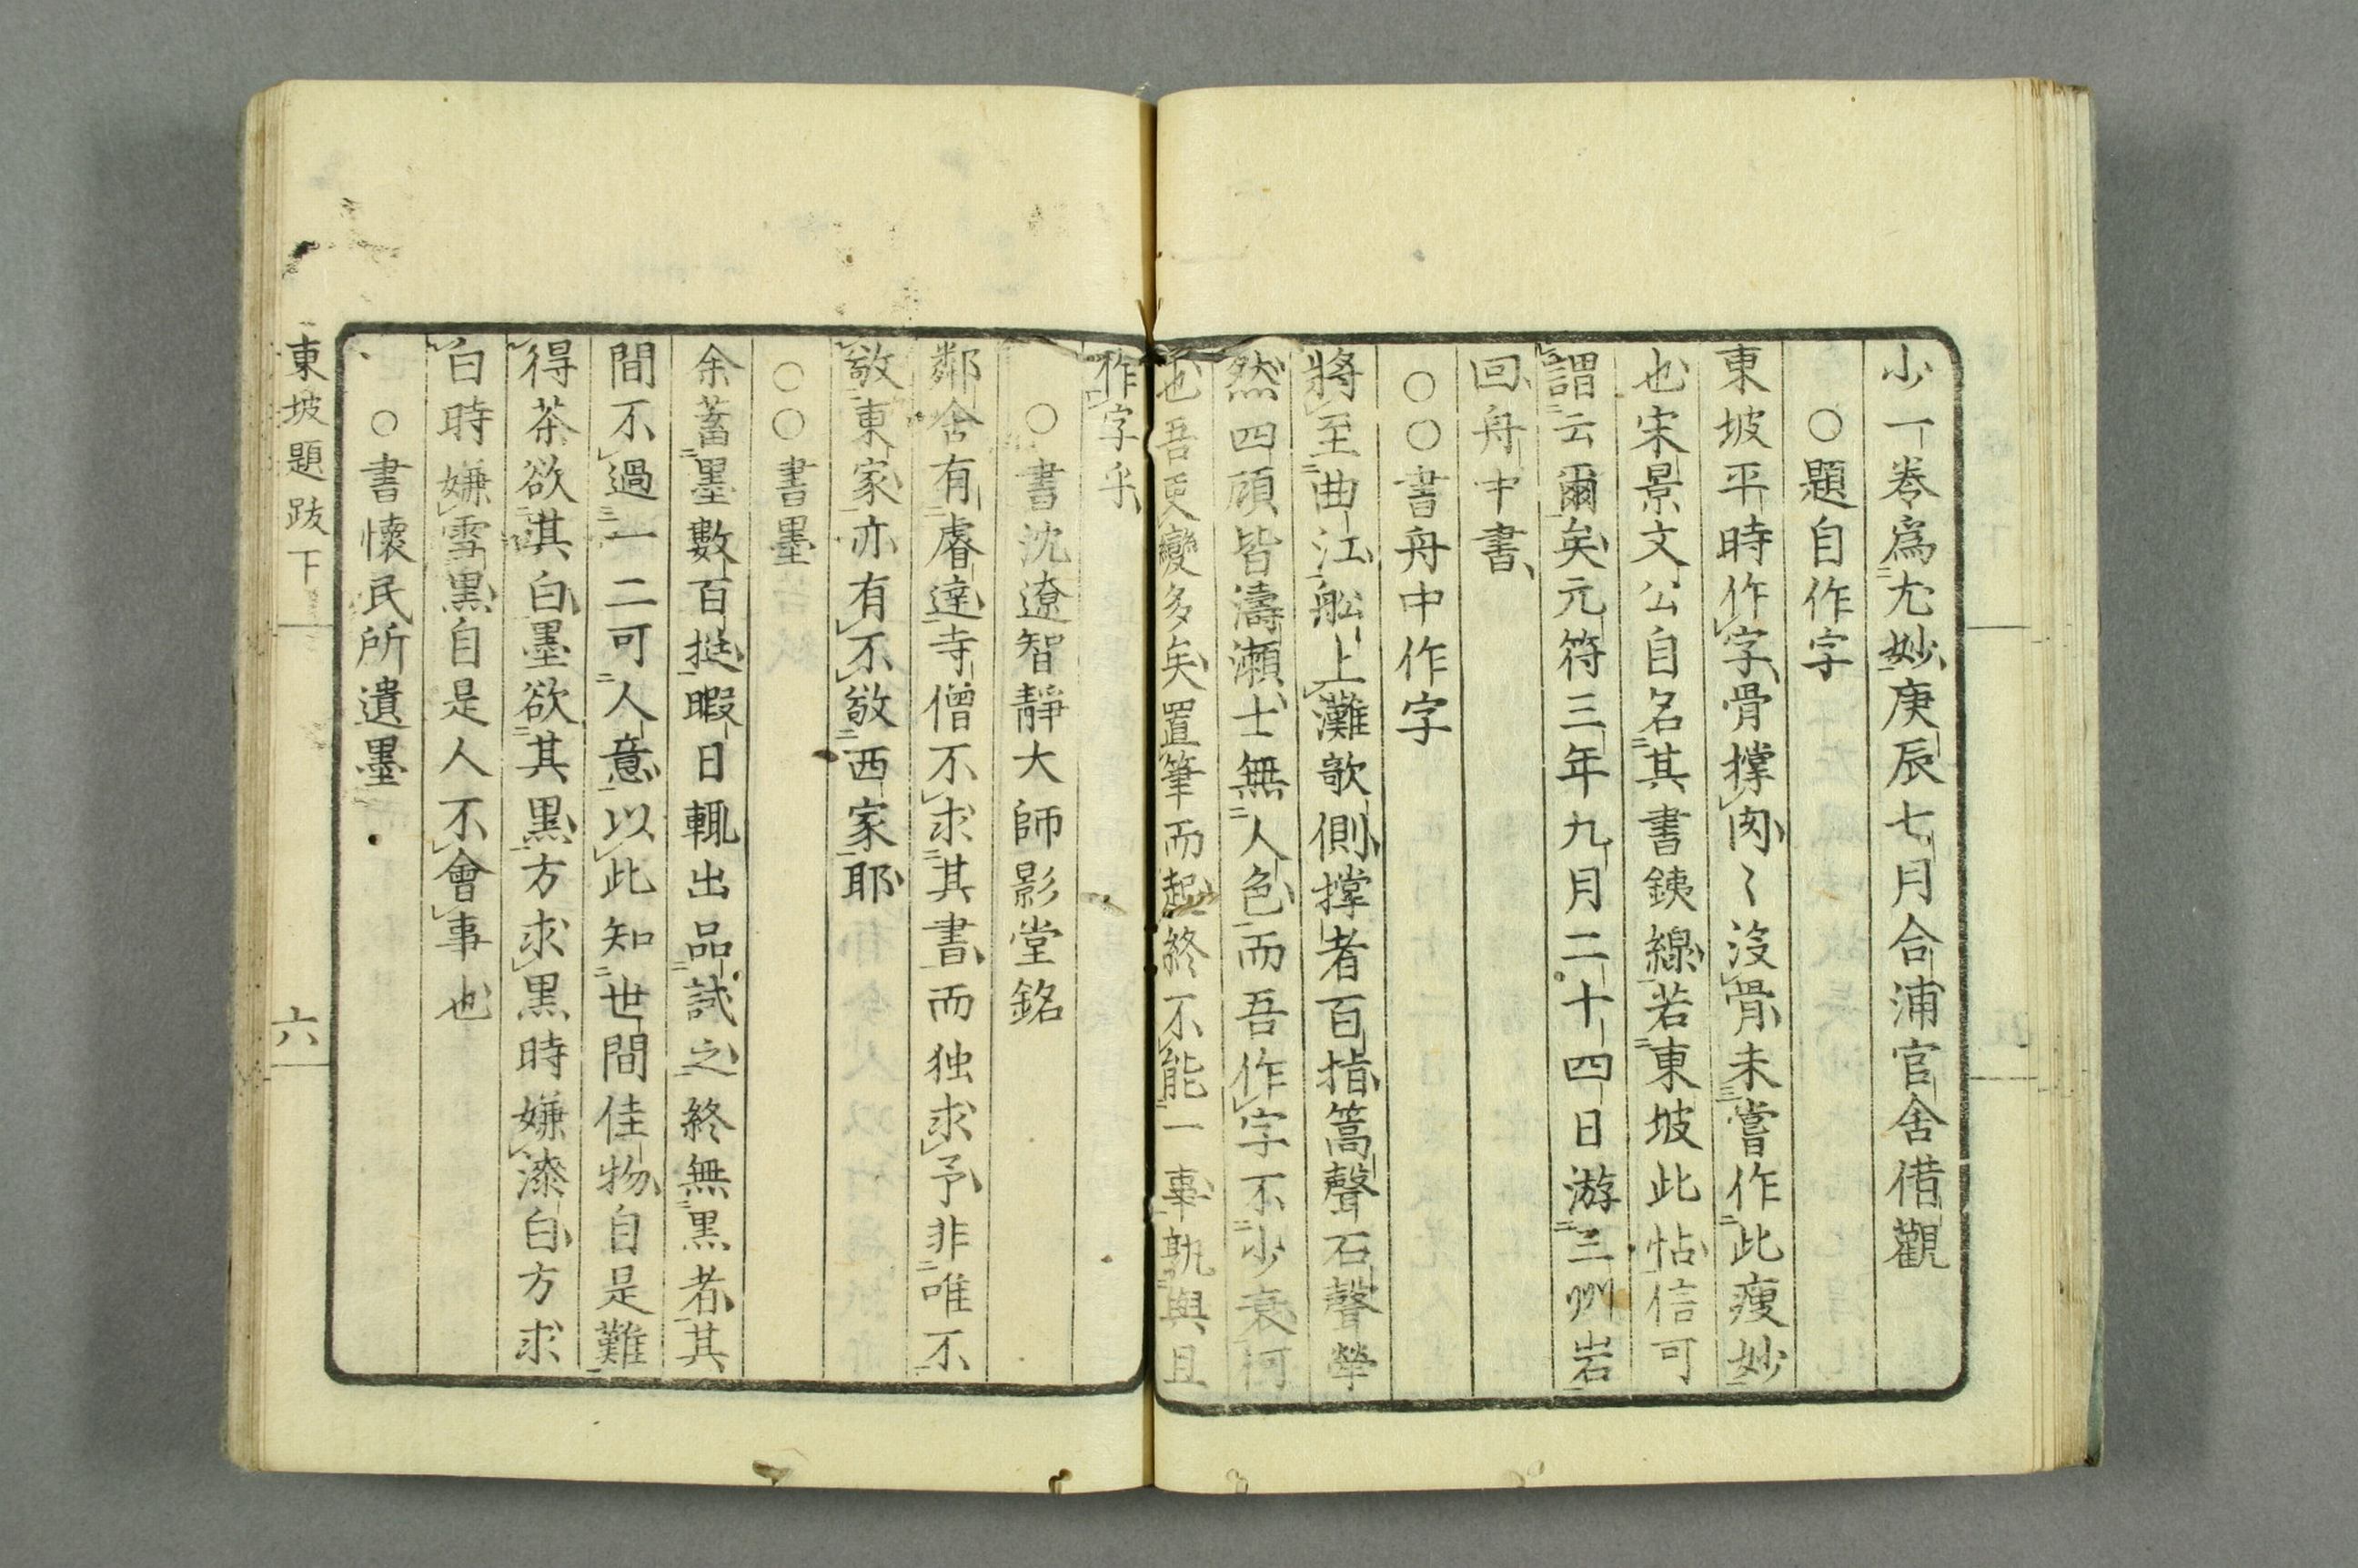 少一卷爲尤妙庚辰七月合浦官舍借觀
○題自作字
東坡平時作字骨撑肉〻没骨未嘗作此瘦妙
也宋景文公自名其書銕線若東坡此帖信可
謂云爾矣元符三年九月二十四日游三州岩
回舟中書
○○書舟中作字
將至曲江舩上灘欹側撑者百指篙聲石聲犖
然四顧皆濤瀬士無人色而吾作字不少衰何
也吾更變多矣置筆而起終不能一事孰與且
作字乎
○書沈遼智靜大師影堂銘
鄰舍有睿達寺僧不求其書而独求予非唯不
敬東家亦有不敬西家耶
○○書墨
余蓄墨數百挺暇日輒出品試之終無黒者其
間不過一二可人意以此知世間佳物自是難
得茶欲其白墨欲其黒方求黒時嫌漆白方求
白時嫌雪黒自是人不會事也
○書懷民所遺墨
東坡題跋下
六